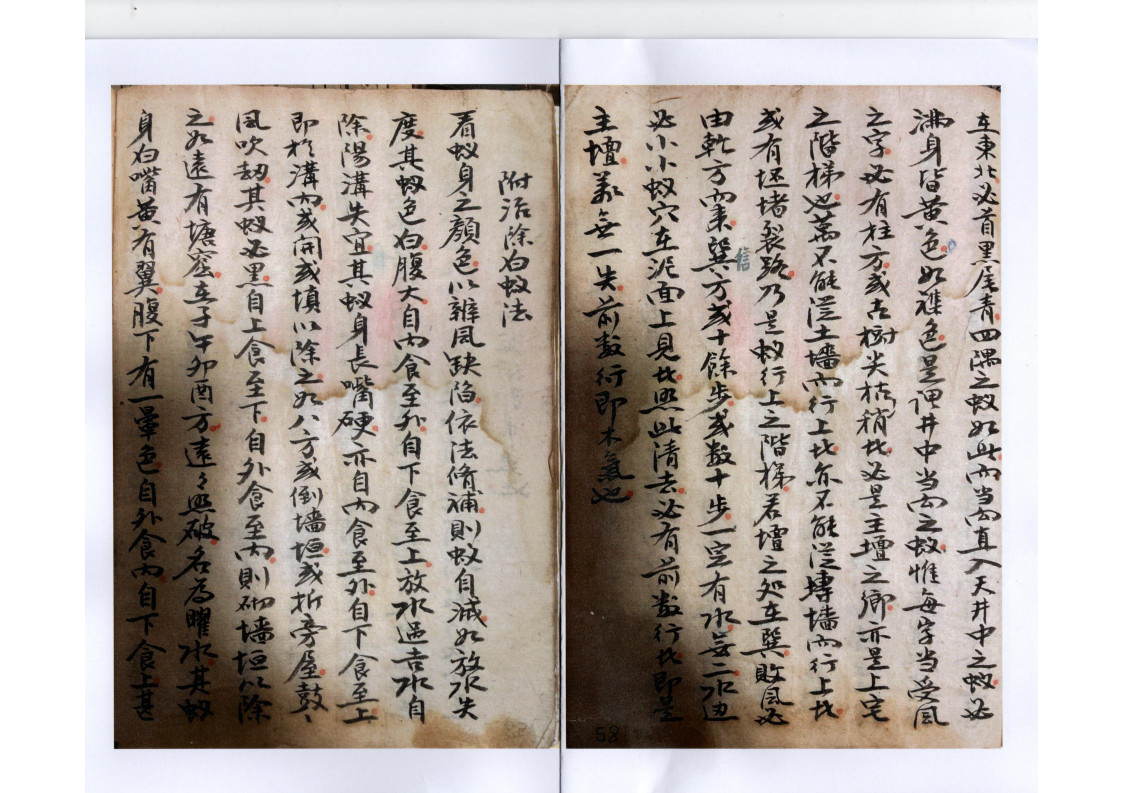 在東北必首黑尾青四隅之蚁如此而当面直入天井中之蚁必
满身皆黄色如雄色是谓井中当面之蚁惟每字当受風
之字必有柱方或古樹尖枯稍比必是主壇之鄉亦是上宅
之階梯也蓋不能從土墻而行上比亦不能從磚墻而行上比
或有坯堵裂路乃是蚁行上之階梯若壇之处在巽敗風必
由乾方而来巽方或十餘步或数十步一定有水無二水边
必小小蚁穴在泥面上見比照此清去必有前数行比即是
主壇萬無一失前数行即木氣也
信
58
附治除白蚁法
看蚁身之顏色以辨風缺陷依法脩補則蚁自滅如放水失
度其蚁色白腹大自内食至外自下食至上放水過吉水自
除陽溝失宜其蚁身長嘴硬亦自内食至外自下食至上
即於溝内或開或填以除之如八方或倒墻垣或折旁屋鼓〻
風吹劫其蚁必黑自上食至下自外食至内則砌墻垣以除
之如遠有塘窟在子午卯酉方遠〻照破名為曜水其蚁
身白嘴黄有翼腹下有一暈色自外食内自下食上甚